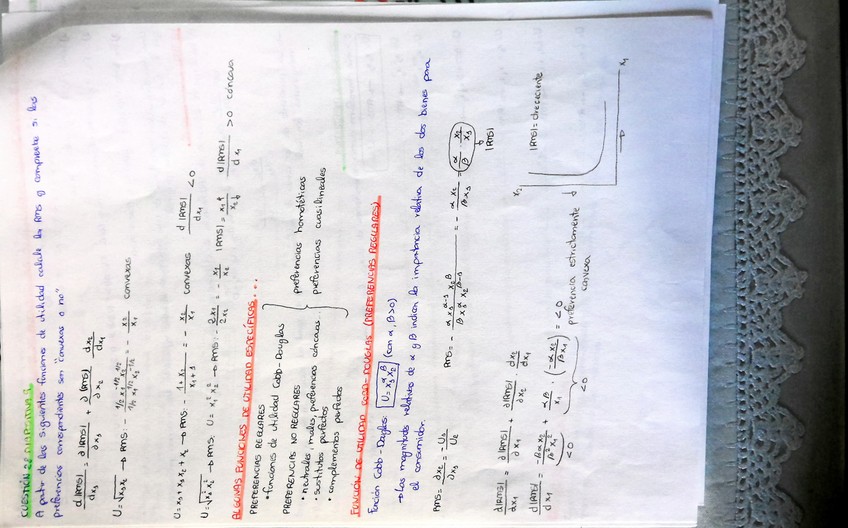 CUESTIÓN 22 DIAPOSITIVA
A partir de las siguientes funciones de utilidad calcule la RMS y compruebe si las
preferencias correspondientes son "convexas o no"
d|RMS|/dx1 = ∂|RMS|/∂x1 + ∂|RMS|/∂x2 · dx2/dx1
U = √x1x2 → RMS = - = - x2/x1 convexas
U = x1 + x1x2 + x2 → RMS: - 1+x2/x1+1 = - x2/x1 convexas d|RMS|/dx1 < 0
U = → RMS. U = x1² x2² → RMS: - 2x1/2x2 = - x1/x2 |RMS| = x1/x2 d|RMS|/dx1 > 0 cóncava
ALGUNAS FUNCIONES DE UTILIDAD ESPECÍFICAS...
PREFERENCIAS REGULARES
• funciones de utilidad Cobb-Douglas
PREFERENCIAS NO REGULARES
• neutrales, males, preferencias cóncavas...
• sustitutos perfectos
• complementos perfectos
preferencias homotéticas
preferencias cuasilineales
FUNCIÓN DE UTILIDAD COBB-DOUGLAS (PREFERENCIAS REGULARES)
Función Cobb-Douglas: U = x1^α x2^β (con α, β > 0)
→ Las magnitudes relativas de α y β indican la importancia relativa de los dos bienes para
el consumidor.
RMS = ∂x2/∂x1 = -U1/U2 RMS = - α x1^α-1 x2^β / β x1^α x2^β-1 = - α x2/β x1 = α/β · x2/x1
|RMS|
d|RMS|/dx1 = ∂|RMS|/∂x1 + ∂|RMS|/∂x2 · dx2/dx1
d|RMS|/dx1 = -βαx2/β²x1² + α/β/x1 · (-αx2/βx1) = < 0
< 0 < 0
preferencia estrictamente
convexa
x2
|RMS| = decreciente
x1